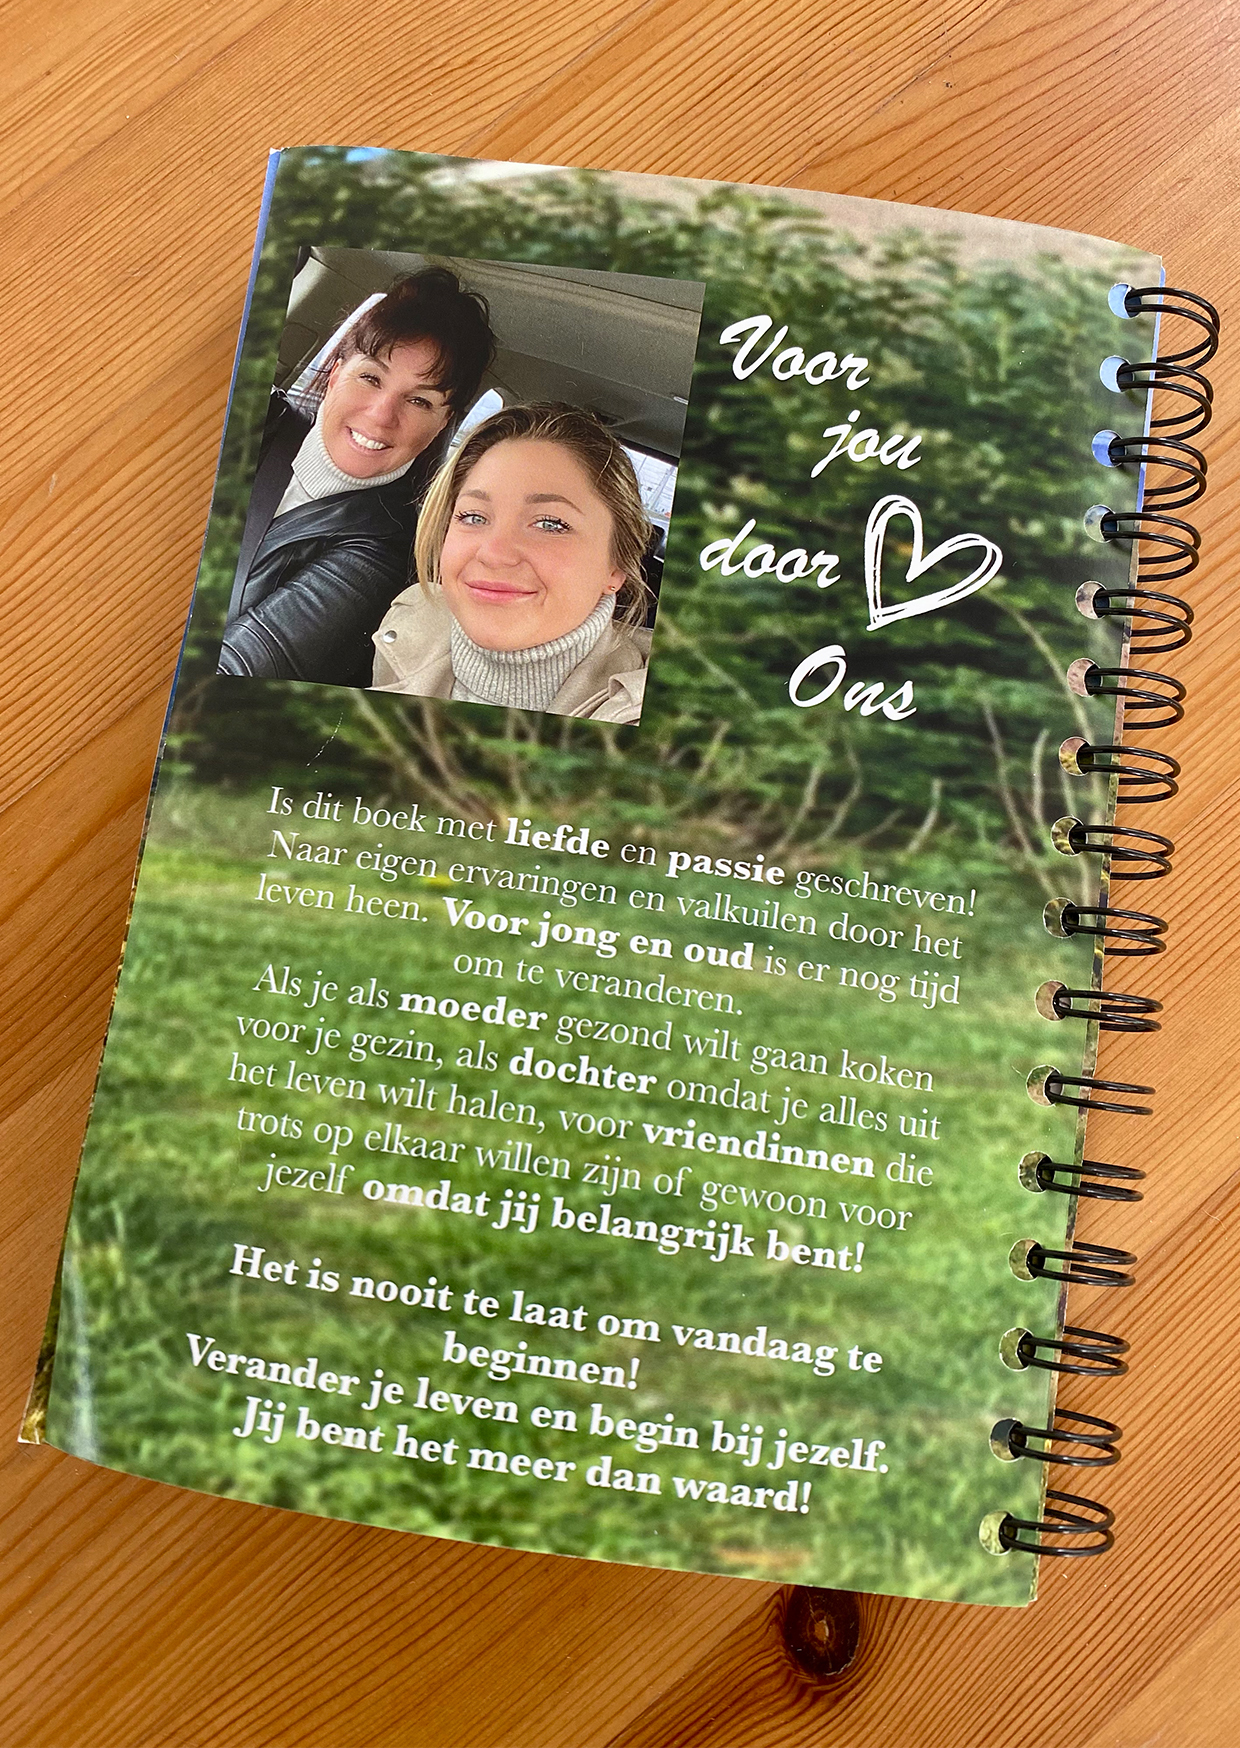 Voor
jou
door
Ons
Is dit boek met liefde en passie geschreven!
Naar eigen ervaringen en valkuilen door het
leven heen. Voor jong en oud is er nog tijd
om te veranderen.
Als je als moeder gezond wilt gaan koken
voor je gezin, als dochter omdat je alles uit
het leven wilt halen, voor vriendinnen die
trots op elkaar willen zijn of gewoon voor
jezelf omdat jij belangrijk bent!
Het is nooit te laat om vandaag te
beginnen!
Verander je leven en begin bij jezelf.
Jij bent het meer dan waard!